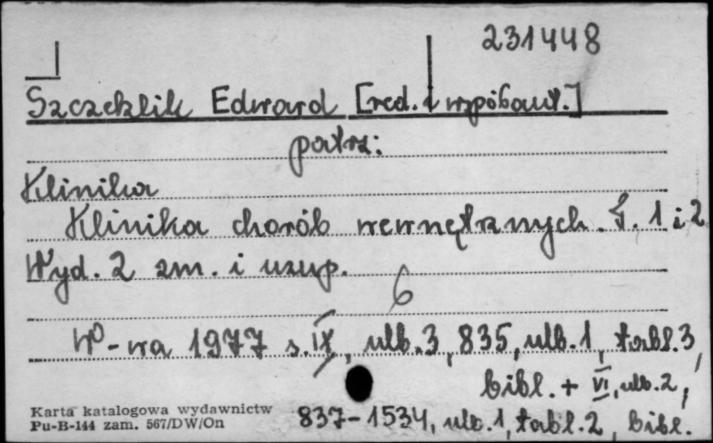 231448
Szczeklik Edward [red. i współaut.]
patrz:
Klinika
Klinika chorób wewnętrznych. T. 1 i 2
Wyd. 2 zm. i uzup.
6
W-wa 1977 s. IX, nlb. 3, 835, nlb. 1, tabl. 3,
bibl. + VI, nlb. 2,
837-1534, nlb. 1, tabl. 2, bibl.
Karta katalogowa wydawnictw
Pu-B-144 zam. 567/DW/On